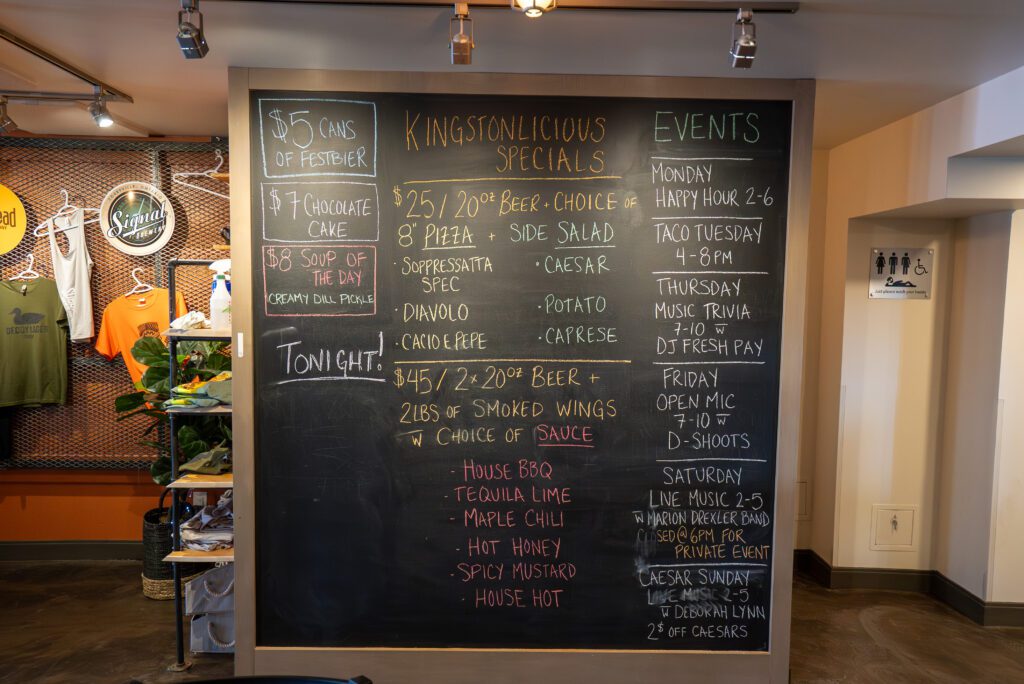 $5 CANS
OF FESTBIER
$7 CHOCOLATE
CAKE
$8 SOUP OF
THE DAY
CREAMY DILL PICKLE
TONIGHT!
KINGSTONLICIOUS
SPECIALS
$25/20oz BEER + CHOICE OF
8" PIZZA + SIDE SALAD
· SOPPRESSATA
SPEC
· DIAVOLO
· CACIO E PEPE
· CAESAR
· POTATO
· CAPRESE
$45/2x20oz BEER +
2LBS OF SMOKED WINGS
W CHOICE OF SAUCE
- HOUSE BBQ
- TEQUILA LIME
- MAPLE CHILI
- HOT HONEY
- SPICY MUSTARD
- HOUSE HOT
EVENTS
MONDAY
HAPPY HOUR 2-6
TACO TUESDAY
4-8PM
THURSDAY
MUSIC TRIVIA
7-10 W
DJ FRESH PAY
FRIDAY
OPEN MIC
7-10 W
D-SHOOTS
SATURDAY
LIVE MUSIC 2-5
W MARION DREXLER BAND
CLOSED @ 6PM FOR
PRIVATE EVENT
CAESAR SUNDAY
LIVE MUSIC 2-5
W DEBORAH LYNN
2$ OFF CAESARS
Signal
BREWERY